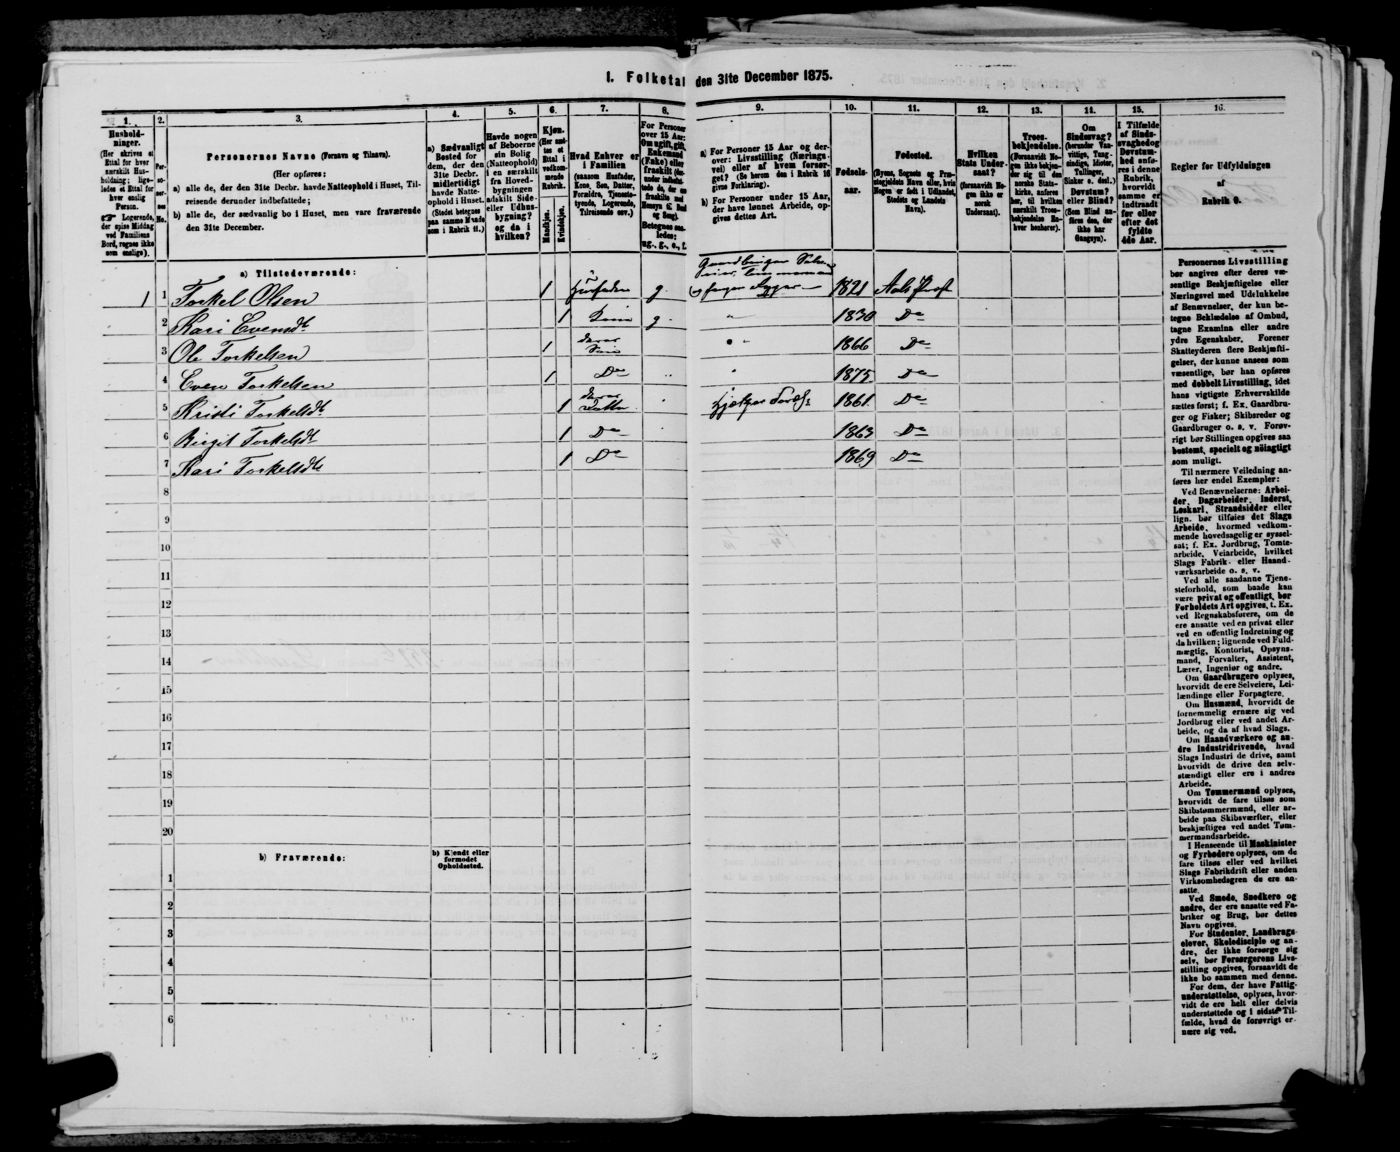 1. Folketal den 31te December 1875.
1.
Hushold-
ninger.
(Her skrives et
Ettal for hver
særskilt Hus-
holdning; lige-
ledes et Ettal for
hver enslig
Person.
Logerende,
der spise Middag
ved Familiens
Bord, regnes ikke
som enslige).
2.
3.
Personernes Navne (Fornavn og Tilnavn).
(Her opføres:
a) alle de, der den 31te Decbr. havde Natteophold i Huset, Til-
reisende derunder indbefattede;
b) alle de, der sædvanlig bo i Huset, men vare fraværende
den 31te December.
4.
a) Sædvanligt
Bosted for
dem, der den
31te Decbr.
midlertidigt
havde Natte-
ophold i Huset.
(Stedet betegnes
paa samme Maade
som i Rubrik 11.)
5.
Havde nogen
af Beboerne
sin Bolig
(Natteophold)
i en særskilt
fra Hoved-
bygningen
adskilt Side-
eller Udhus-
bygning?
og da i
hvilken?
6.
Kjøn.
(Her sæt-
tes et
Ettal i
vedkom-
mende
Rubrik.
Mandkjøn.
Kvindekjøn.
7.
Hvad Enhver er
i Familien
(saasom Husfader,
Kone, Søn, Datter,
Forældre, Tjeneste-
tyende, Logerende,
Tilreisende osv.)
8.
For Personer
over 15 Aar:
Om ugift, gift,
Enkemand
(Enke) eller
fraskilt
ug., g., e., f.
9.
a) For Personer 15 Aar og der-
over: Livsstilling (Nærings-
vei) eller af hvem forsør-
get? (Se herom den i Rubrik 16
givne Forklaring).
b) For Personer under 15 Aar,
der have lønnet Arbeide, op-
gives dettes Art.
10.
Fødsels-
aar.
11.
Fødested.
(Byens, Sognets og Præ-
stegjeldets Navn eller, hvis
Nogen er født i Udlandet,
Stedets og Landets
Navn).
12.
Hvilken
Stats Under-
saat?
(Forsaavidt No-
gen ikke er
norsk
Undersaat).
13.
Troes-
bekjendelse.
(Forsaavidt No-
gen ikke bekjen-
der sig til den
norske Stats-
kirke, anføres
til hvilken
særskilt Troes-
bekjendelse En-
hver henhører).
14.
Om
Sindssvag?
(herunder Van-
vittige, Tung-
sindige, Idioter,
Tullinger,
Sinker o. desl.)
Døvstum?
eller Blind?
(Som Blind an-
føres den, der
ikke har
Gangsyn).
15.
I Tilfælde
af Sinds-
svaghed og
Døvstum-
hed anfø-
res i denne
Rubrik,
hvorvidt
samme er
indtraadt
før eller
efter det
fyldte
4de Aar.
16.
Regler for Udfyldningen
af
Rubrik 9.
a) Tilstedeværende:
Gaardbruger
1 1 Torkel Olsen 1 Husfader g. 1821 Aals Præst
2 Kari Evensdt 1 Kone g. " 1830 Do
3 Ole Torkelsen 1 deres Søn " 1866 Do
4 Even Torkelsen 1 Do " " 1875 Do
5 Kristi Torkelsdt 1 deres Datter 1861 Do
6 Birgit Torkelsdt 1 Do 1863 Do
7 Kari Torkelsdt 1 Do 1869 Do
8
9
10
11
12
13
14
15
16
17
18
19
20
b) Fraværende:
b) Kjendt eller
formodet
Opholdssted.
1
2
3
4
5
6
Personernes Livsstilling
bør angives efter deres væ-
sentlige Beskjæftigelse eller
Næringsvei med Udelukkelse
af Benævnelser, der kun be-
tegne Bekledelse af Ombud,
tagne Examina eller andre
ydre Egenskaber. Forener
Skatteyderen flere Beskjæfti-
gelser, der kunne ansees som
væsentlige, bør han opføres
med dobbelt Livsstilling, idet
hans vigtigste Erhvervskilde
sættes først; f. Ex. Gaardbru-
ger og Fisker; Skibsreder og
Gaardbruger o. s. v. Forøv-
rigt bør Stillingen opgives saa
bestemt, specielt og nøiagtigt
som muligt.
Til nærmere Veiledning an-
føres her endel Exempler:
Ved Benævnelserne: Arbei-
der, Dagarbeider, Inderst,
Løskarl, Strandsidder eller
lign. bør tilføies det Slags
Arbeide, hvormed vedkom-
mende hovedsagelig er syssel-
sat; f. Ex. Jordbrug, Tomte-
arbeide, Veiarbeide, hvilket
Slags Fabrik- eller Haand-
værksarbeide o. s. v.
Ved alle saadanne Tjene-
steforhold, som baade kan
være privat og offentligt, bør
Forholdets Art opgives, t. Ex.
ved Regnskabsførere, om de
ere ansatte ved en privat eller
ved en offentlig Indretning og
da hvilken; lignende ved Fuld-
mægtig, Kontorist, Opsyns-
mand, Forvalter, Assistent,
Lærer, Ingeniør og andre.
Om Gaardbrugere oplyses,
hvorvidt de ere Selveiere, Lei-
lændinge eller Forpagtere.
Om Husmænd, hvorvidt de
fornemmelig ernære sig ved
Jordbrug eller ved andet Ar-
beide, og da af hvad Slags.
Om Haandværkere og an-
dre Industridrivende, hvad
Slags Industri de drive, samt
hvorvidt de drive den selv-
stændigt eller ere i andres
Arbeide.
Om Tømmermænd oplyses,
hvorvidt de fare tilsøs som
Skibstømmermænd, eller ar-
beide paa Skibsværfter, eller
beskjæftiges ved andet Tøm-
mermandsarbeide.
I Henseende til Maskinister
og Fyrbødere oplyses, om de
fare tilsøs eller ved hvilket
Slags Fabrikdrift eller anden
Virksomhedsgren de ere an-
satte.
Ved Smede, Snedkere og
andre, der ere ansatte ved Fa-
briker og Brug, bør dettes
Navn opgives.
For Studenter, Landbrugs-
elever, Skoledisciple og an-
dre, der ikke forsørge sig
selv, bør Forsørgerens Livs-
stilling opgives, forsaavidt de
ikke bo sammen med denne.
For dem, der have Fattig-
understøttelse, oplyses, hvor-
vidt de ere helt eller delvis
understøttede og i sidste Til-
fælde, hvad de forøvrigt er-
nære sig ved.